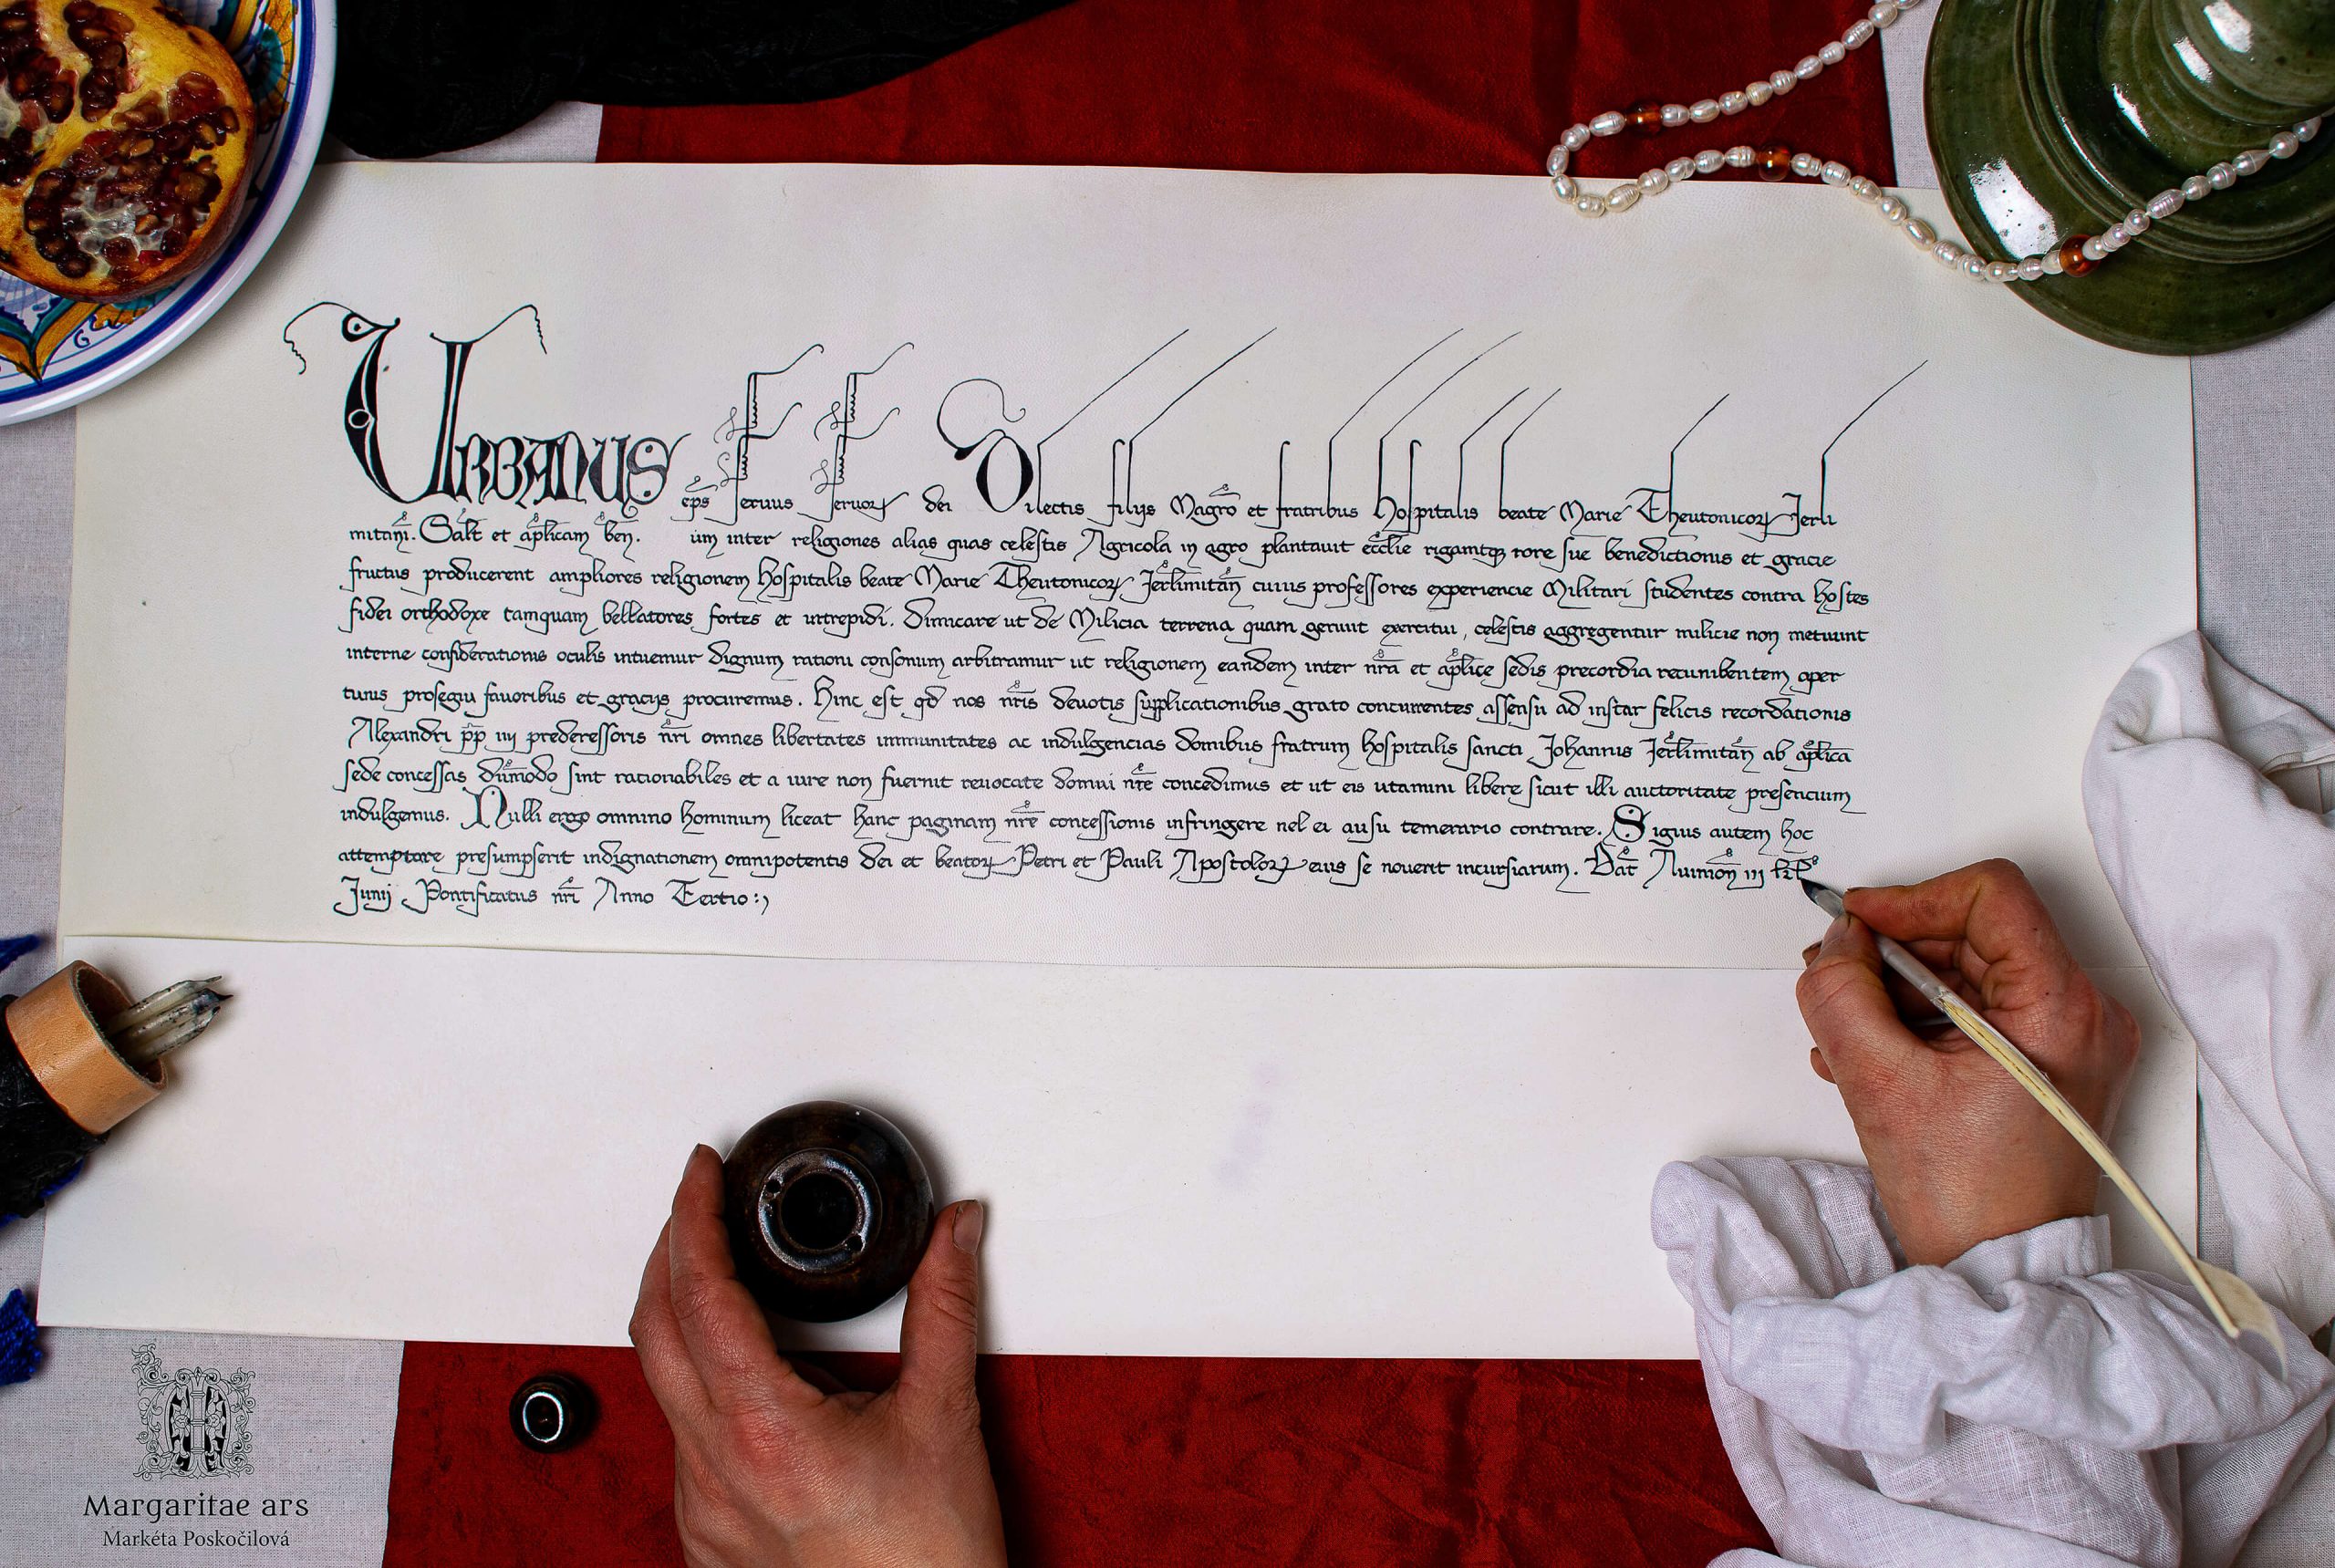 URBANUS ep̄s seruus seruoꝝ dei Dilectis filijs Magr̄o et fratribus hospitalis beate Marie Theutonicoꝝ Jerli
mitan̄j. Sal̄t et ap̄licam ben̄. um inter religiones alias quas celestis Agricola in agro plantauit ecc̄lie rigantqꝫ rore sue benedictionis et gracie
fructus producerent ampliores religionem hospitalis beate Marie Theutonicoꝝ Jerl̄imitan̄ cuius professores experiencie Militari studentes contra hostes
fidei orthodoxe tamquam bellatores fortes et intrepidi. Dimicare ut de Milicia terrena quam gerunt exercitui, celestis aggregentur milicie non metuunt
interne considerationis oculis intuemur dignum rationi consonum arbitramur ut religionem eandem inter nr̄a et ap̄lice sedis precordia recunibentem oper
tunis prosequi fauoribus et gracijs procuremus. Hinc est qd̄ nos nr̄is deuotis supplicationibus grato concurrentes assensu ad instar felicis recordationis
Alexandri pp̄ iiij predecessoris nr̄i omnes libertates immunitates ac indulgencias domibus fratrum hospitalis sancti Johannis Jerl̄imitan̄ ab ap̄lica
sede concessas dum̄odo sint rationabiles et a iure non fuerint reuocate domui nr̄e concedimus et ut eis utamini libere sicut illi auctoritate presencium
indulgemus. Nulli ergo omnino hominum liceat hanc paginam nr̄e concessionis infringere uel ei ausu temerario contrare. Siquis autem hoc
attemptare presumpserit indignationem omnipotentis dei et beatoꝝ Petri et Pauli Apostoloꝝ eius se nouerit incursiarum. Dat̄ Auinion̄ iij kl̄
Junij Pontificatus nr̄i Anno Tertio:,
Margaritae ars
Markéta Poskočilová